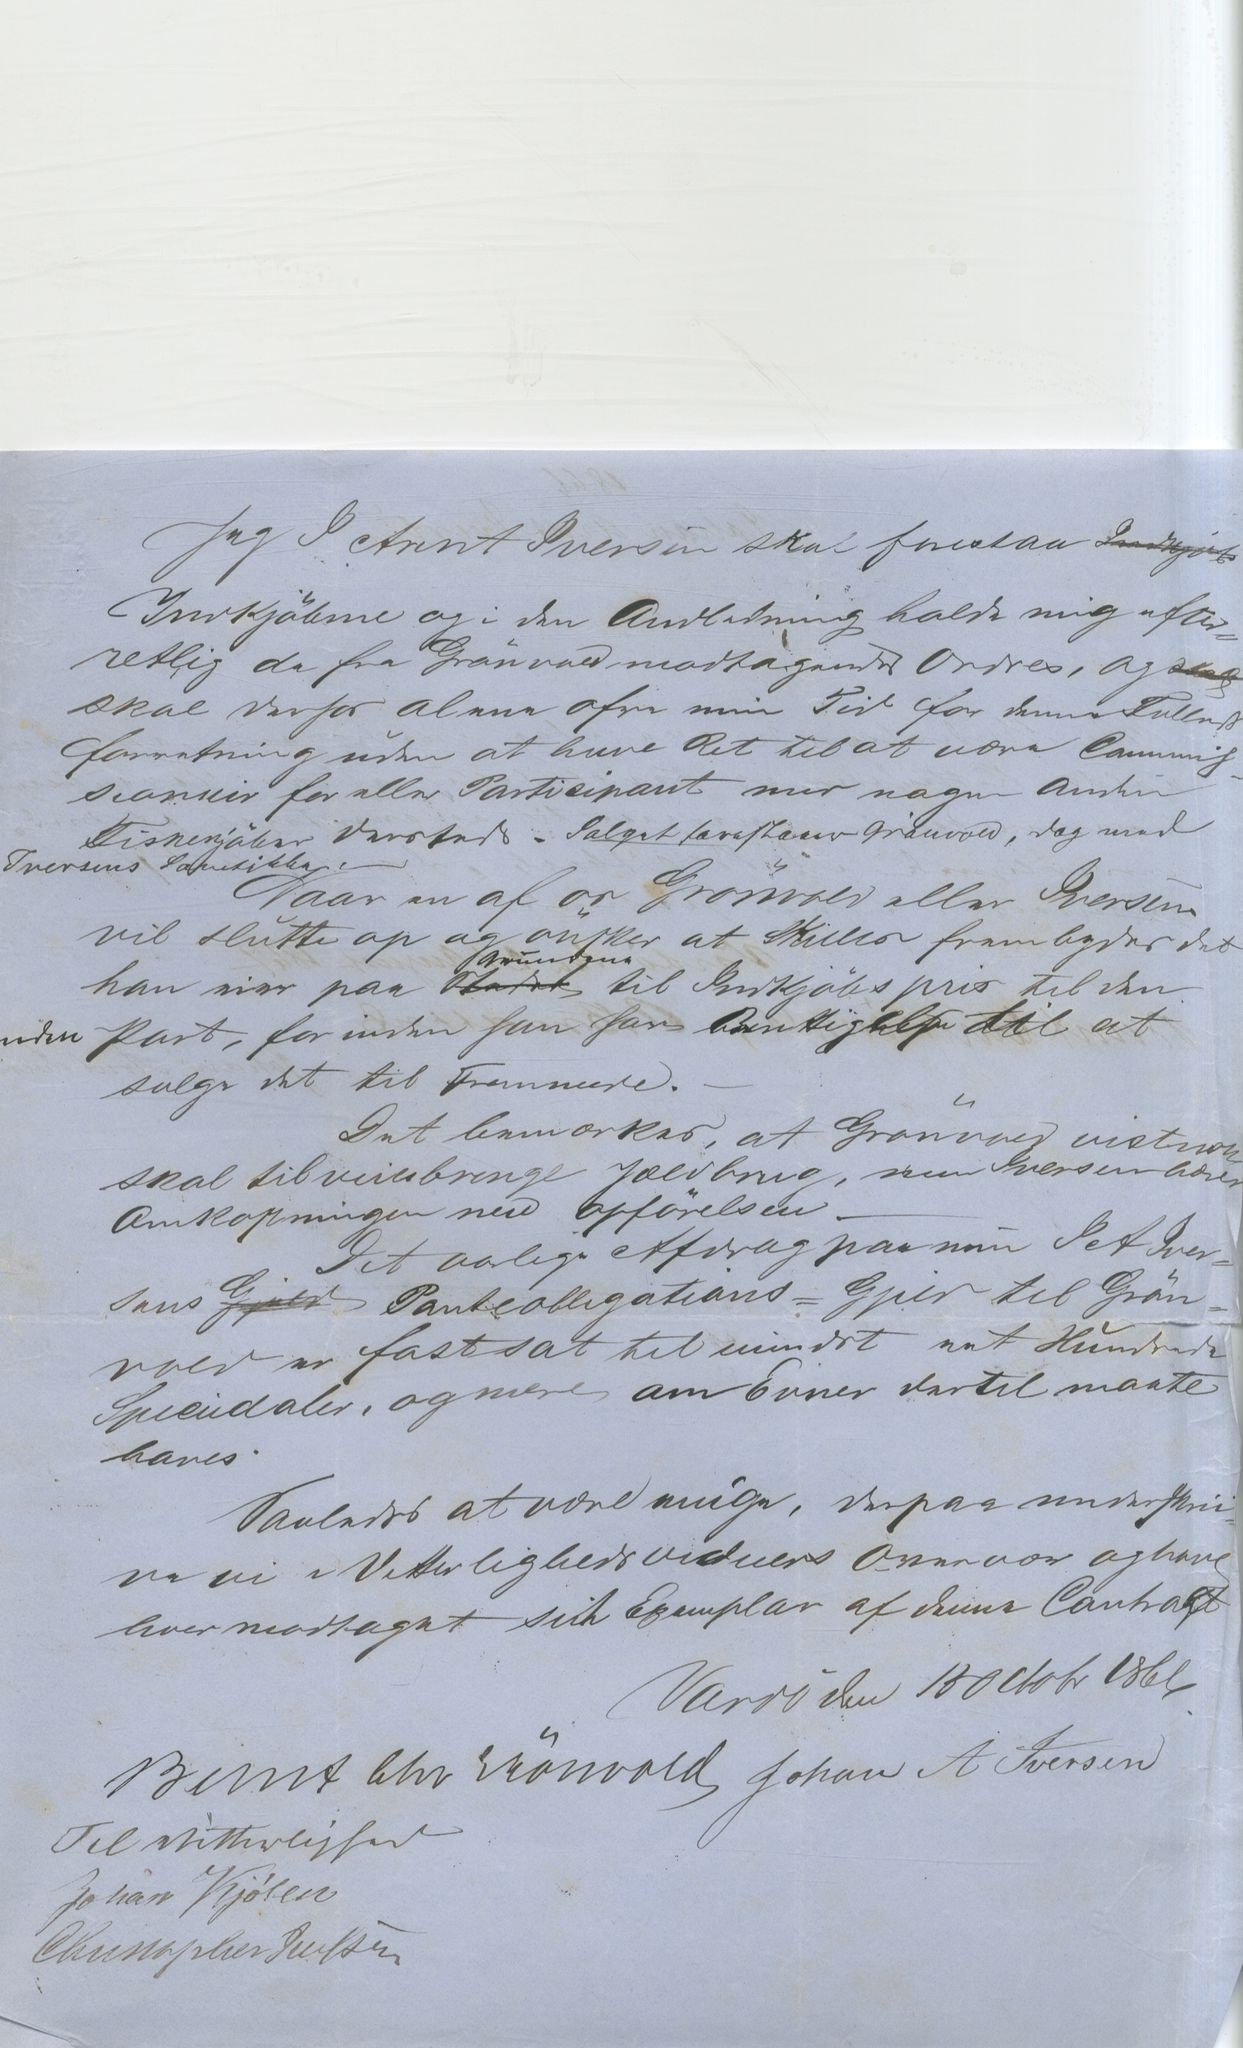 Jeg J Arent Iversen skal forestaa Indkjöbs
Indkjöbene og i den Andledning holde mig efter=
retlig de fra Grönvold modtagende Ordres, og skal
skal derfor alene ofre min Tid for denne Fælleds
forretning uden at have Ret til at være Commis-
sionair for eller Participant med nogen anden
Fiskekjöber dersteds. Salget forestaaer Grönvold, dog med
Iversens Samtikke. —
Naar en af os Grönvold eller Iversen
vil slutte op og önsker at skilles frembydes det
han eier paa Stedet til Indkjöbspris til den
anden Part, forinden han har til at
sælge det til Fremmede. —
Det bemærkes, at Grönvold vistnok
skal tilveiebringe Jældbrug, men Iversen bærer
Omkostningen ved opförelsen —
Det aarlige Afdrag paa min J A Iver=
sens Gjeld Panteobligations=Gjeld til Grön=
vold er fastsat til mindst eet Hundrede
Speciedaler, og mere om Evner dertil maatte
haves.
Saaledes at være enige, derpaa underskri=
ve vi i Vitterlighedsvidners Overvær og have
hver modtaget sit Exemplar af denne Contract
Vardö den 18 Octobr 1861
Bernt Chr Grönvold Johan A Iversen
Til Vitterlighed
Johan Kjölen